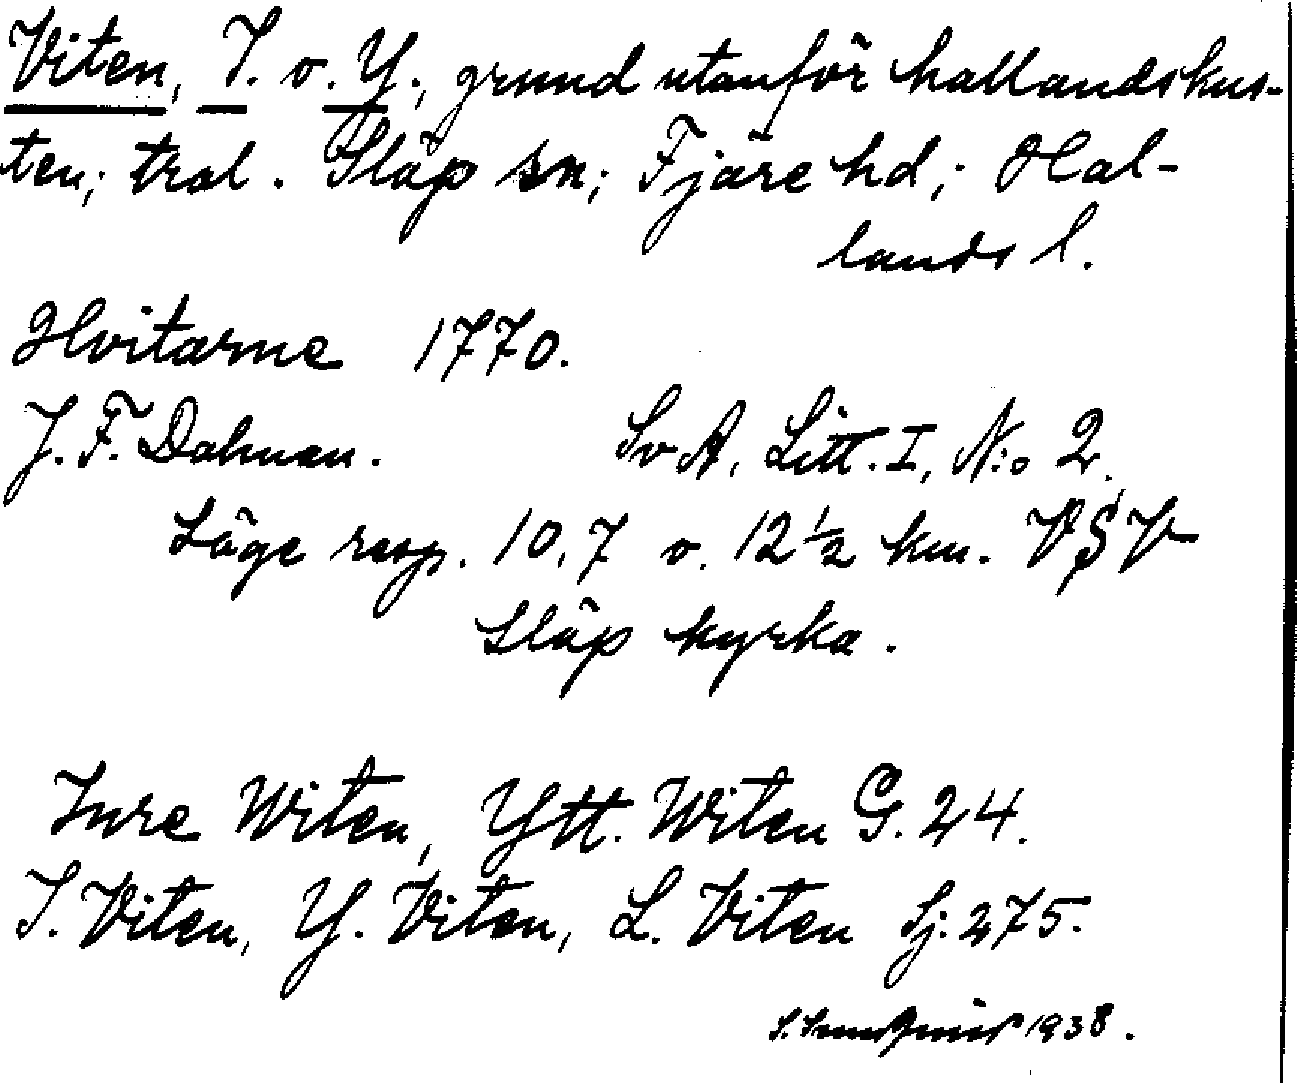 Viten, I. o. Y., grund utanför hallandskus-
ten; tral. Släp sn; Fjäre hd; Hal-
lands l.
Hvitarne 1770.
J. F. Dalman. Sv A, Litt. I, N:o 2.
Läge resp. 10,7 o. 12 1/2 km. VSV
Släp kyrka.
Inre Witen, Ytt. Witen G. 24.
I. Viten, Y. Viten, L. Viten Sj. 275.
1938.